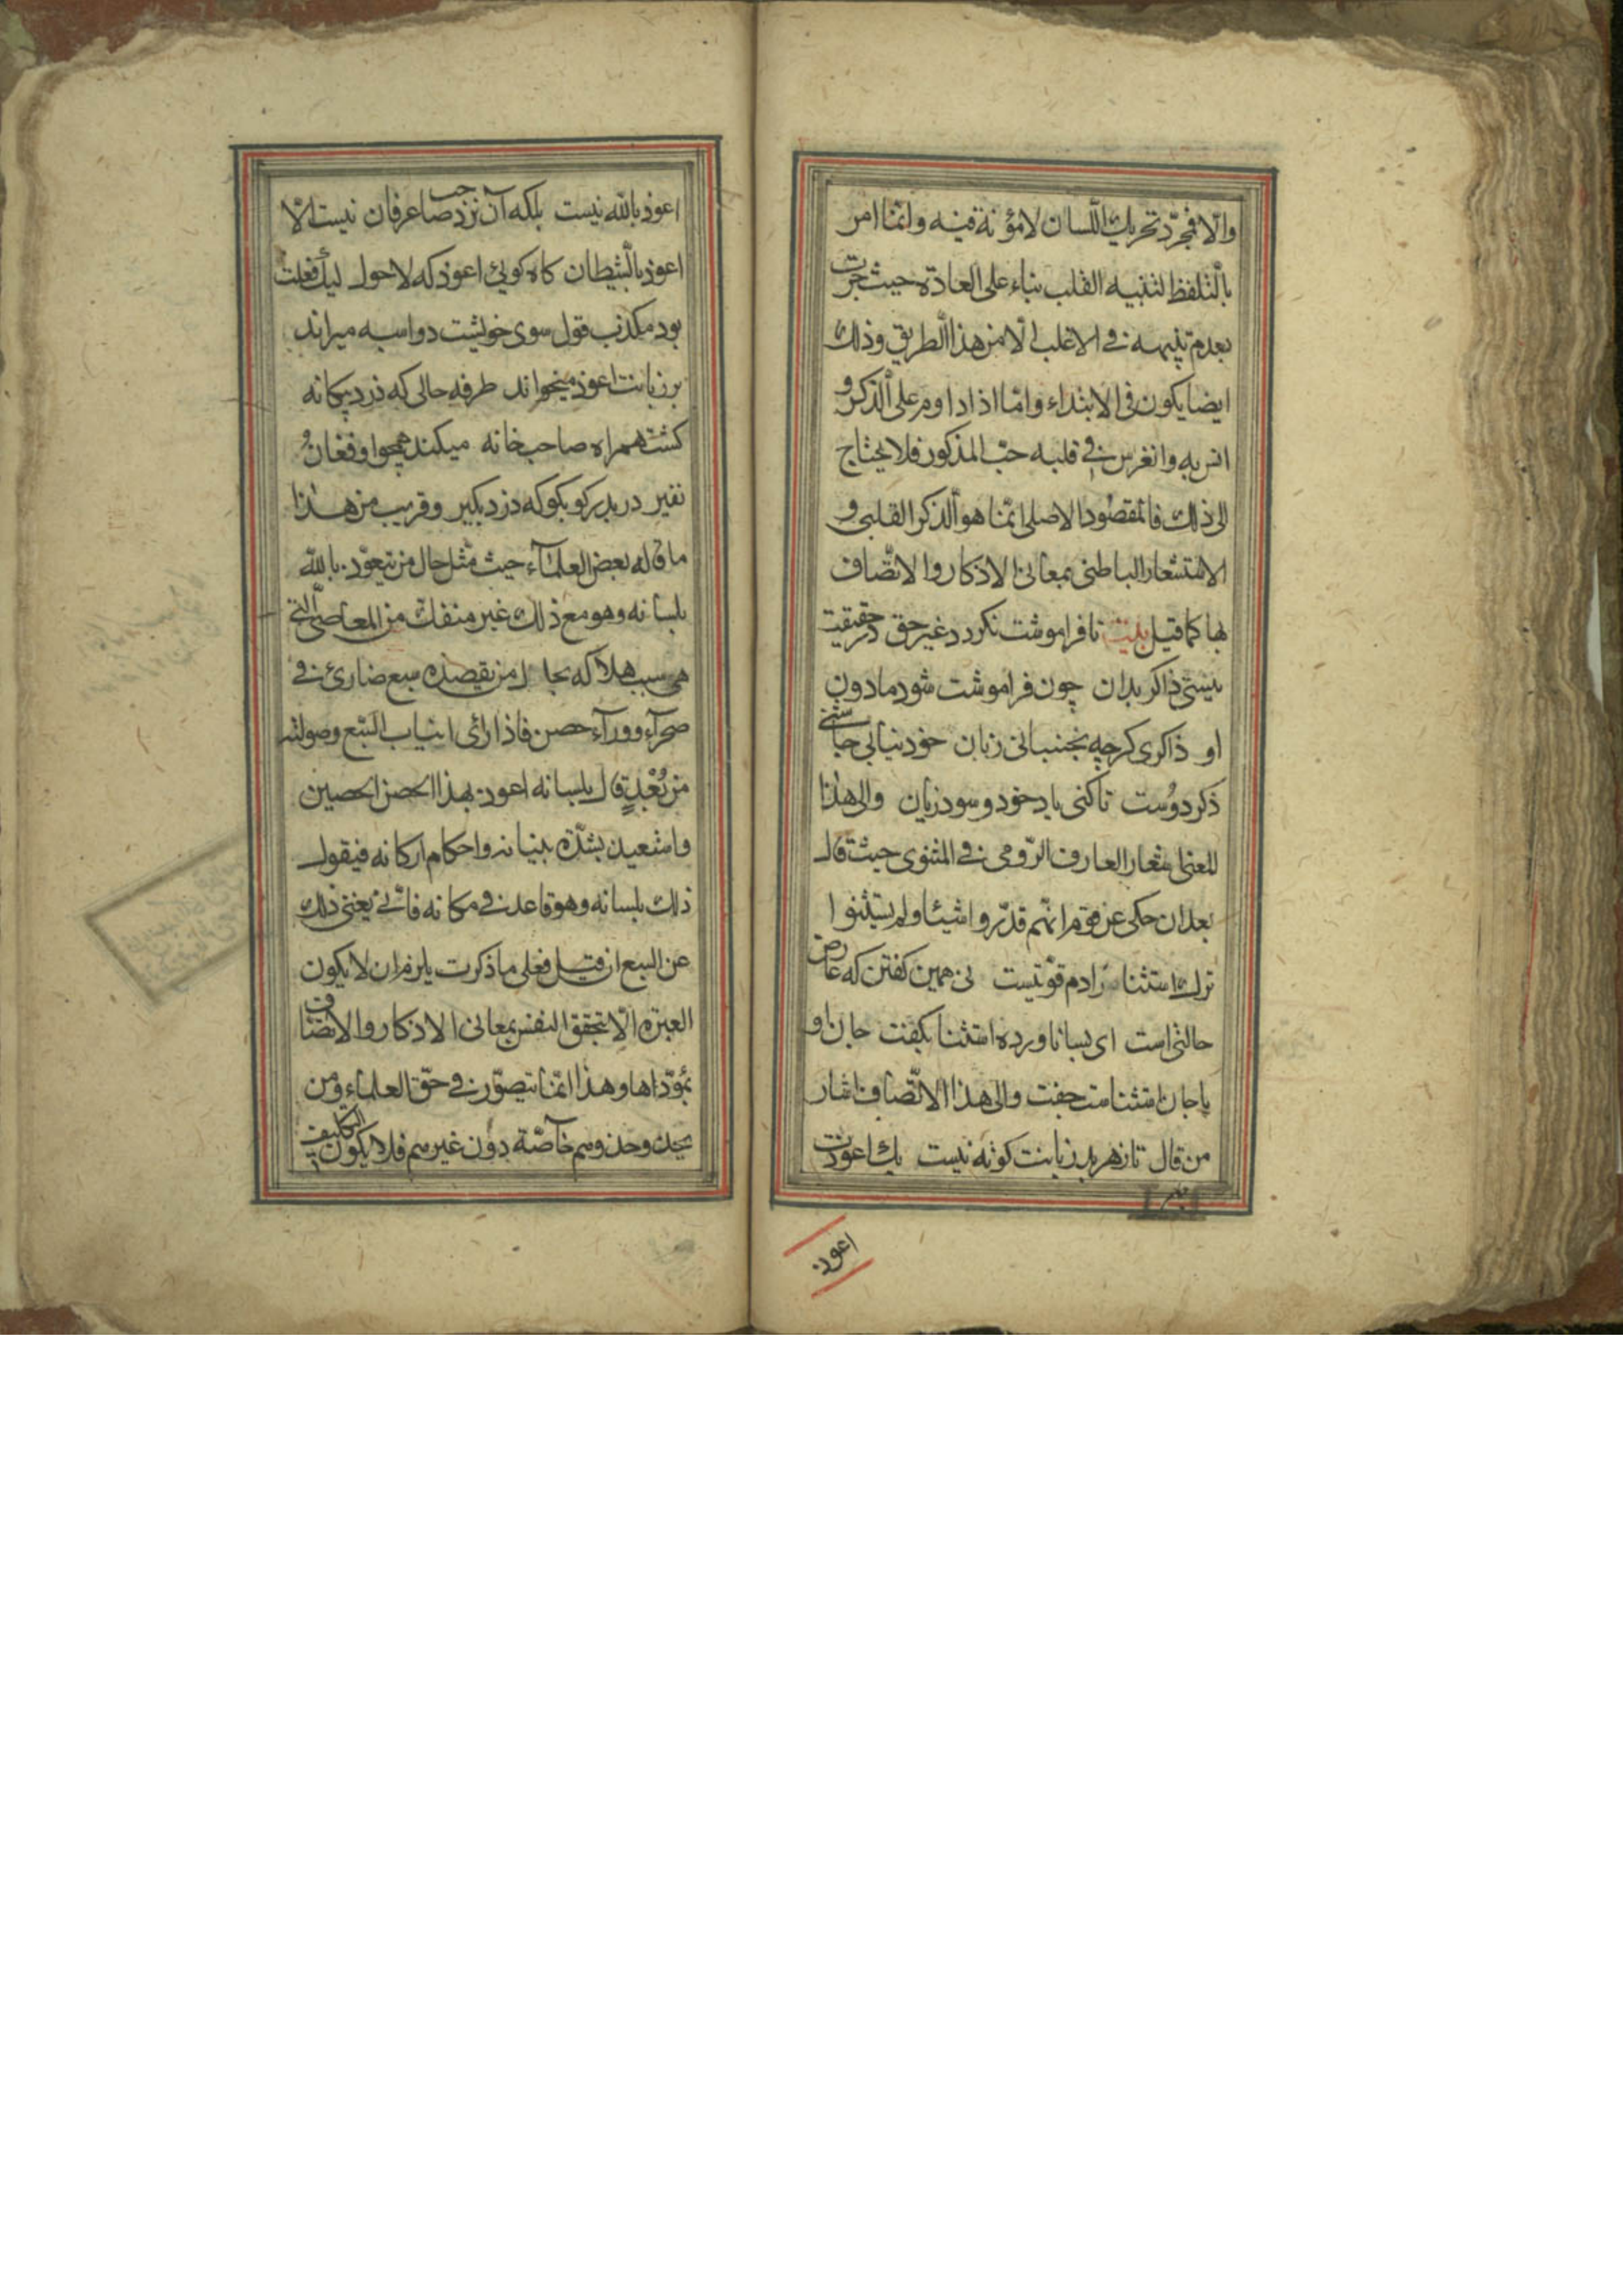 والّا فمجرّد تحريك اللّسان لا مؤنة فيه وانّما امر
بالتلفظ لتنبيه القلب بناء على العادة حيث جرت
بعدم تنبيهه فى الاغلب الّا من هذا الطريق وذلك
ايضا يكون فى الابتداء وامّا اذا داوم على الذكر و
انس به وانغرس فى قلبه حبّ المذكور فلا يحتاج
الى ذلك فالمقصود الاصلى انّما هو الذكر القلبى و
الاستشعار الباطنى بمعانى الاذكار والاتّصاف
بها كما قيل بيت تا فراموشت نكردد غير حق در حقيقت
نيستى ذاكر بدان چون فراموشت شود مادون
او ذاكرى كرچه نجنبانى زبان خود نيابى چاشنى
ذكر دوست تا كنى ياد خود و سود و زيان والى هذا
المعنى اشعار العارف الرّومى فى المثنوى حيث قال
بعد ان حكى عن قوم انّهم قدّروا شيئا ولم يستثنوا
ترك استثنا مرادم قسوتيست نى همين كفتن كه عارض
حالتى است اى بسا ناورده استثنا بكفت جان او
با جان استثناست جفت والى هذا الاتّصاف اشار
من قال تا ز هر بد زبانت كوته نيست يك اعوذت
اعوذ
اعوذ بالله نيست بلكه آن نزد صاحب عرفان نيست الّا
اعوذ بالشيطان كاه كوئى اعوذ كه لاحول ليك فعلت
بود مكذب قول سوى خويشت دواسبه ميراند
بر زبانت اعوذ ميخواند طرفه حالى كه دزد بيكانه
كشته همراه صاحب خانه ميكند همچو او فغان و
نفير در بدر كو بكو كه دزد بكير وقريب من هذا
ما قاله بعض العلمآء حيث مثّل حال من يتعوّذ بالله
بلسانه وهو مع ذلك غير منفك من المعاصى الّتى
هى سبب هلاكه بحال من يقصده سبع ضارى فى
صحرآء وورآء حصن فاذا راى انياب السّبع وصولته
من بُعْدٍ قال بلسانه اعوذ بهذا الحصن الحصين
واستعين بشدّة بنيانه واحكام اركانه فيقول
ذلك بلسانه وهو قاعد فى مكانه فانّى يغنى ذلك
عن السبع ان قيل فعلى ما ذكرت يلزم ان لا يكون
العبرة الّا بتحقق النفس بمعانى الاذكار والاتصاف
بمؤدّاها وهذا انّما يتصوّر فى حقّ العلماء ومن
يحذو حذوهم خآصّة دون غيرهم فلا يكون التكليف